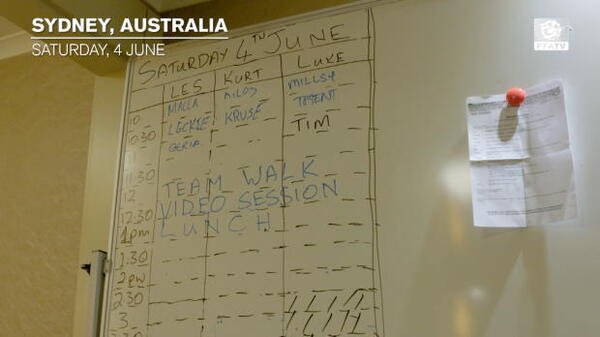 SYDNEY, AUSTRALIA
SATURDAY, 4 JUNE
FFATV
SATURDAY 4TH JUNE
LES KURT LUKE
10 MALLA MILOS MILLSY
10.30 LECKIE KRUSE TRENT
11 GERIA TIM
11.30
12 TEAM WALK
12.30 VIDEO SESSION
1pm LUNCH
1.30
2pm
2.30
3